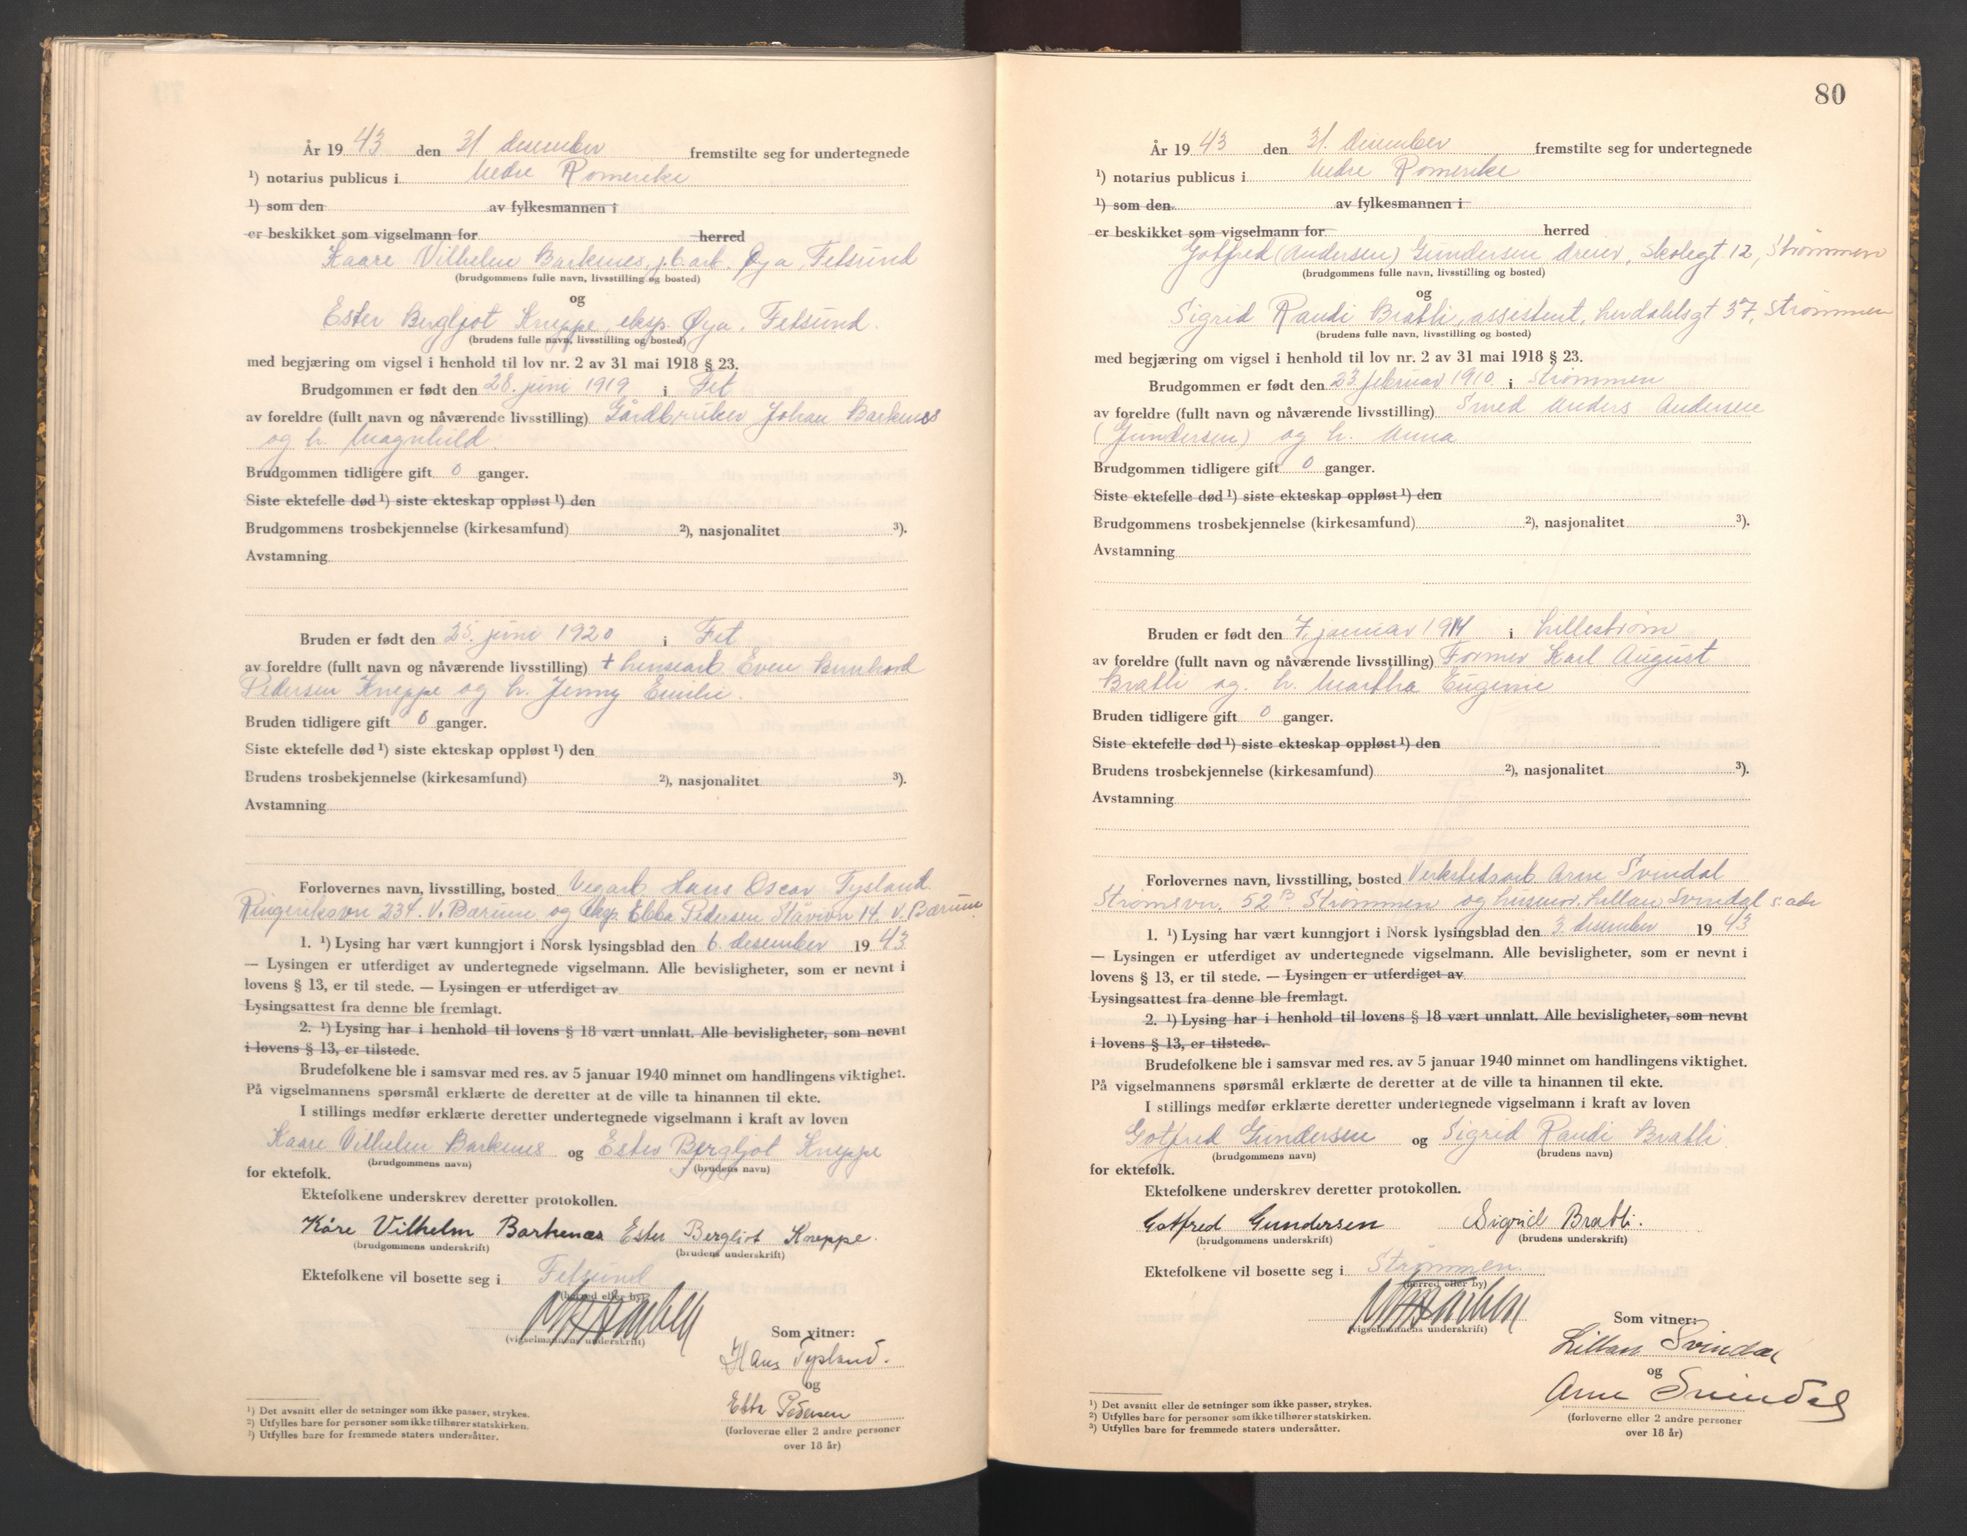 År 19 43 den 31 desember fremstilte seg for undertegnede
¹) notarius publicus i Nedre Romerike
¹) som den av fylkesmannen i
er beskikket som vigselmann for herred
Kaare Vilhelm Barknes, j.b.arb. Øya, Fetsund
(brudgommens fulle navn, livsstilling og bosted)
og
Ester Bergljot Kneppe, eksp. Øya, Fetsund.
(brudens fulle navn, livsstilling og bosted)
med begjæring om vigsel i henhold til lov nr. 2 av 31 mai 1918 § 23.
Brudgommen er født den 28. juni 1919 i Fet
av foreldre (fullt navn og nåværende livsstilling) Gårdbruker Johan Barknes
og h. Magnhild.
Brudgommen tidligere gift 0 ganger.
Siste ektefelle død ¹) siste ekteskap oppløst ¹) den
Brudgommens trosbekjennelse (kirkesamfund) ²), nasjonalitet ³).
Avstamning
Bruden er født den 25. juni 1920 i Fet
av foreldre (fullt navn og nåværende livsstilling) + lensearb. Even Bernhard
Pedersen Kneppe og h. Jenny Emilie.
Bruden tidligere gift 0 ganger.
Siste ektefelle død ¹) siste ekteskap oppløst ¹) den
Brudens trosbekjennelse (kirkesamfund) ²), nasjonalitet ³).
Avstamning
Forlovernes navn, livsstilling, bosted Vegarb. Hans Oscar Tysland
Ringeriksvn 234. V. Bærum og eksp. Ebba Pedersen Stavivn 14 V. Bærum
1. ¹) Lysing har vært kunngjort i Norsk lysingsblad den 6. desember 19 43
— Lysingen er utferdiget av undertegnede vigselmann. Alle bevisligheter, som er nevnt i
lovens § 13, er til stede. — Lysingen er utferdiget av
Lysingsattest fra denne ble fremlagt.
2. ¹) Lysing har i henhold til lovens § 18 vært unnlatt. Alle bevisligheter, som nevnt
i lovens § 13, er tilstede.
Brudefolkene ble i samsvar med res. av 5 januar 1940 minnet om handlingens viktighet.
På vigselmannens spørsmål erklærte de deretter at de ville ta hinannen til ekte.
I stillings medfør erklærte deretter undertegnede vigselmann i kraft av loven
Kaare Vilhelm Barknes og Ester Bergljot Kneppe
(brudgommens navn) (brudens navn)
for ektefolk.
Ektefolkene underskrev deretter protokollen.
Kåre Vilhelm Barknæs Ester Bergliot Kneppe.
(brudgommens underskrift) (brudens underskrift)
Ektefolkene vil bosette seg i Fetsund
(herred eller by)
(vigselmannens underskrift)
Som vitner:
Hans Tysland.
og
Ebba Pedersen
(forloverne eller 2 andre personer
over 18 år)
¹) Det avsnitt eller de setninger som ikke passer, strykes.
²) Utfylles bare for personer som ikke tilhører statskirken.
³) Utfylles bare for fremmede staters undersåtter.
80
År 19 43 den 31. desember fremstilte seg for undertegnede
¹) notarius publicus i Nedre Romerike
¹) som den av fylkesmannen i
er beskikket som vigselmann for herred
Gotfred (Andersen) Gundersen, dreier, Skolegt. 12, Strømmen
(brudgommens fulle navn, livsstilling og bosted)
og
Sigrid Randi Bratli, assistent, Lurdahlsgt 37, Strømmen
(brudens fulle navn, livsstilling og bosted)
med begjæring om vigsel i henhold til lov nr. 2 av 31 mai 1918 § 23.
Brudgommen er født den 23. februar 1910 i Strømmen
av foreldre (fullt navn og nåværende livsstilling) Smed Anders Andersen
(Gundersen) og h. Anna
Brudgommen tidligere gift 0 ganger.
Siste ektefelle død ¹) siste ekteskap oppløst ¹) den
Brudgommens trosbekjennelse (kirkesamfund) ²), nasjonalitet ³).
Avstamning
Bruden er født den 7. januar 1914 i Lillestrøm
av foreldre (fullt navn og nåværende livsstilling) Former Karl August
Bratli og h. Martha Eugenie
Bruden tidligere gift 0 ganger.
Siste ektefelle død ¹) siste ekteskap oppløst ¹) den
Brudens trosbekjennelse (kirkesamfund) ²), nasjonalitet ³).
Avstamning
Forlovernes navn, livsstilling, bosted Verkstedsarb Arne Svindal
Strømsvn. 52 B Strømmen og husmor Lillian Svindal s. adr
1. ¹) Lysing har vært kunngjort i Norsk lysingsblad den 3. desember 19 43
— Lysingen er utferdiget av undertegnede vigselmann. Alle bevisligheter, som er nevnt i
lovens § 13, er til stede. — Lysingen er utferdiget av
Lysingsattest fra denne ble fremlagt.
2. ¹) Lysing har i henhold til lovens § 18 vært unnlatt. Alle bevisligheter, som nevnt
i lovens § 13, er tilstede.
Brudefolkene ble i samsvar med res. av 5 januar 1940 minnet om handlingens viktighet.
På vigselmannens spørsmål erklærte de deretter at de ville ta hinannen til ekte.
I stillings medfør erklærte deretter undertegnede vigselmann i kraft av loven
Gotfred Gundersen og Sigrid Randi Bratli
(brudgommens navn) (brudens navn)
for ektefolk.
Ektefolkene underskrev deretter protokollen.
Gotfred Gundersen Sigrid Bratli.
(brudgommens underskrift) (brudens underskrift)
Ektefolkene vil bosette seg i Strømmen.
(herred eller by)
(vigselmannens underskrift)
Som vitner:
Lillian Svindal
og
Arne Svindal
(forloverne eller 2 andre personer
over 18 år)
¹) Det avsnitt eller de setninger som ikke passer, strykes.
²) Utfylles bare for personer som ikke tilhører statskirken.
³) Utfylles bare for fremmede staters undersåtter.